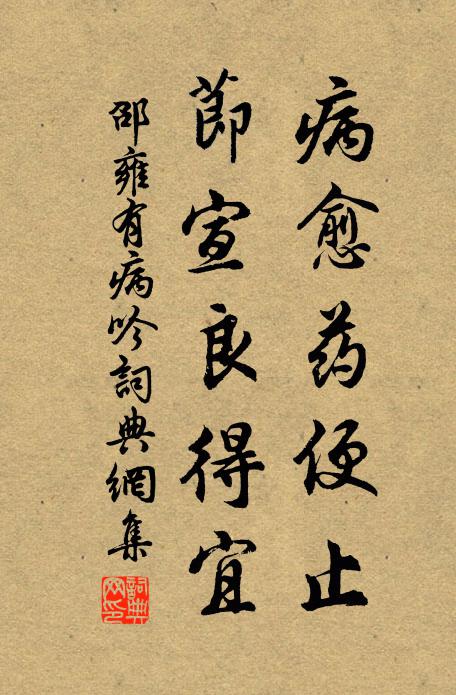 病愈药便止
節宣良得宜
邵雍有病吟詞典網集
詞典網印